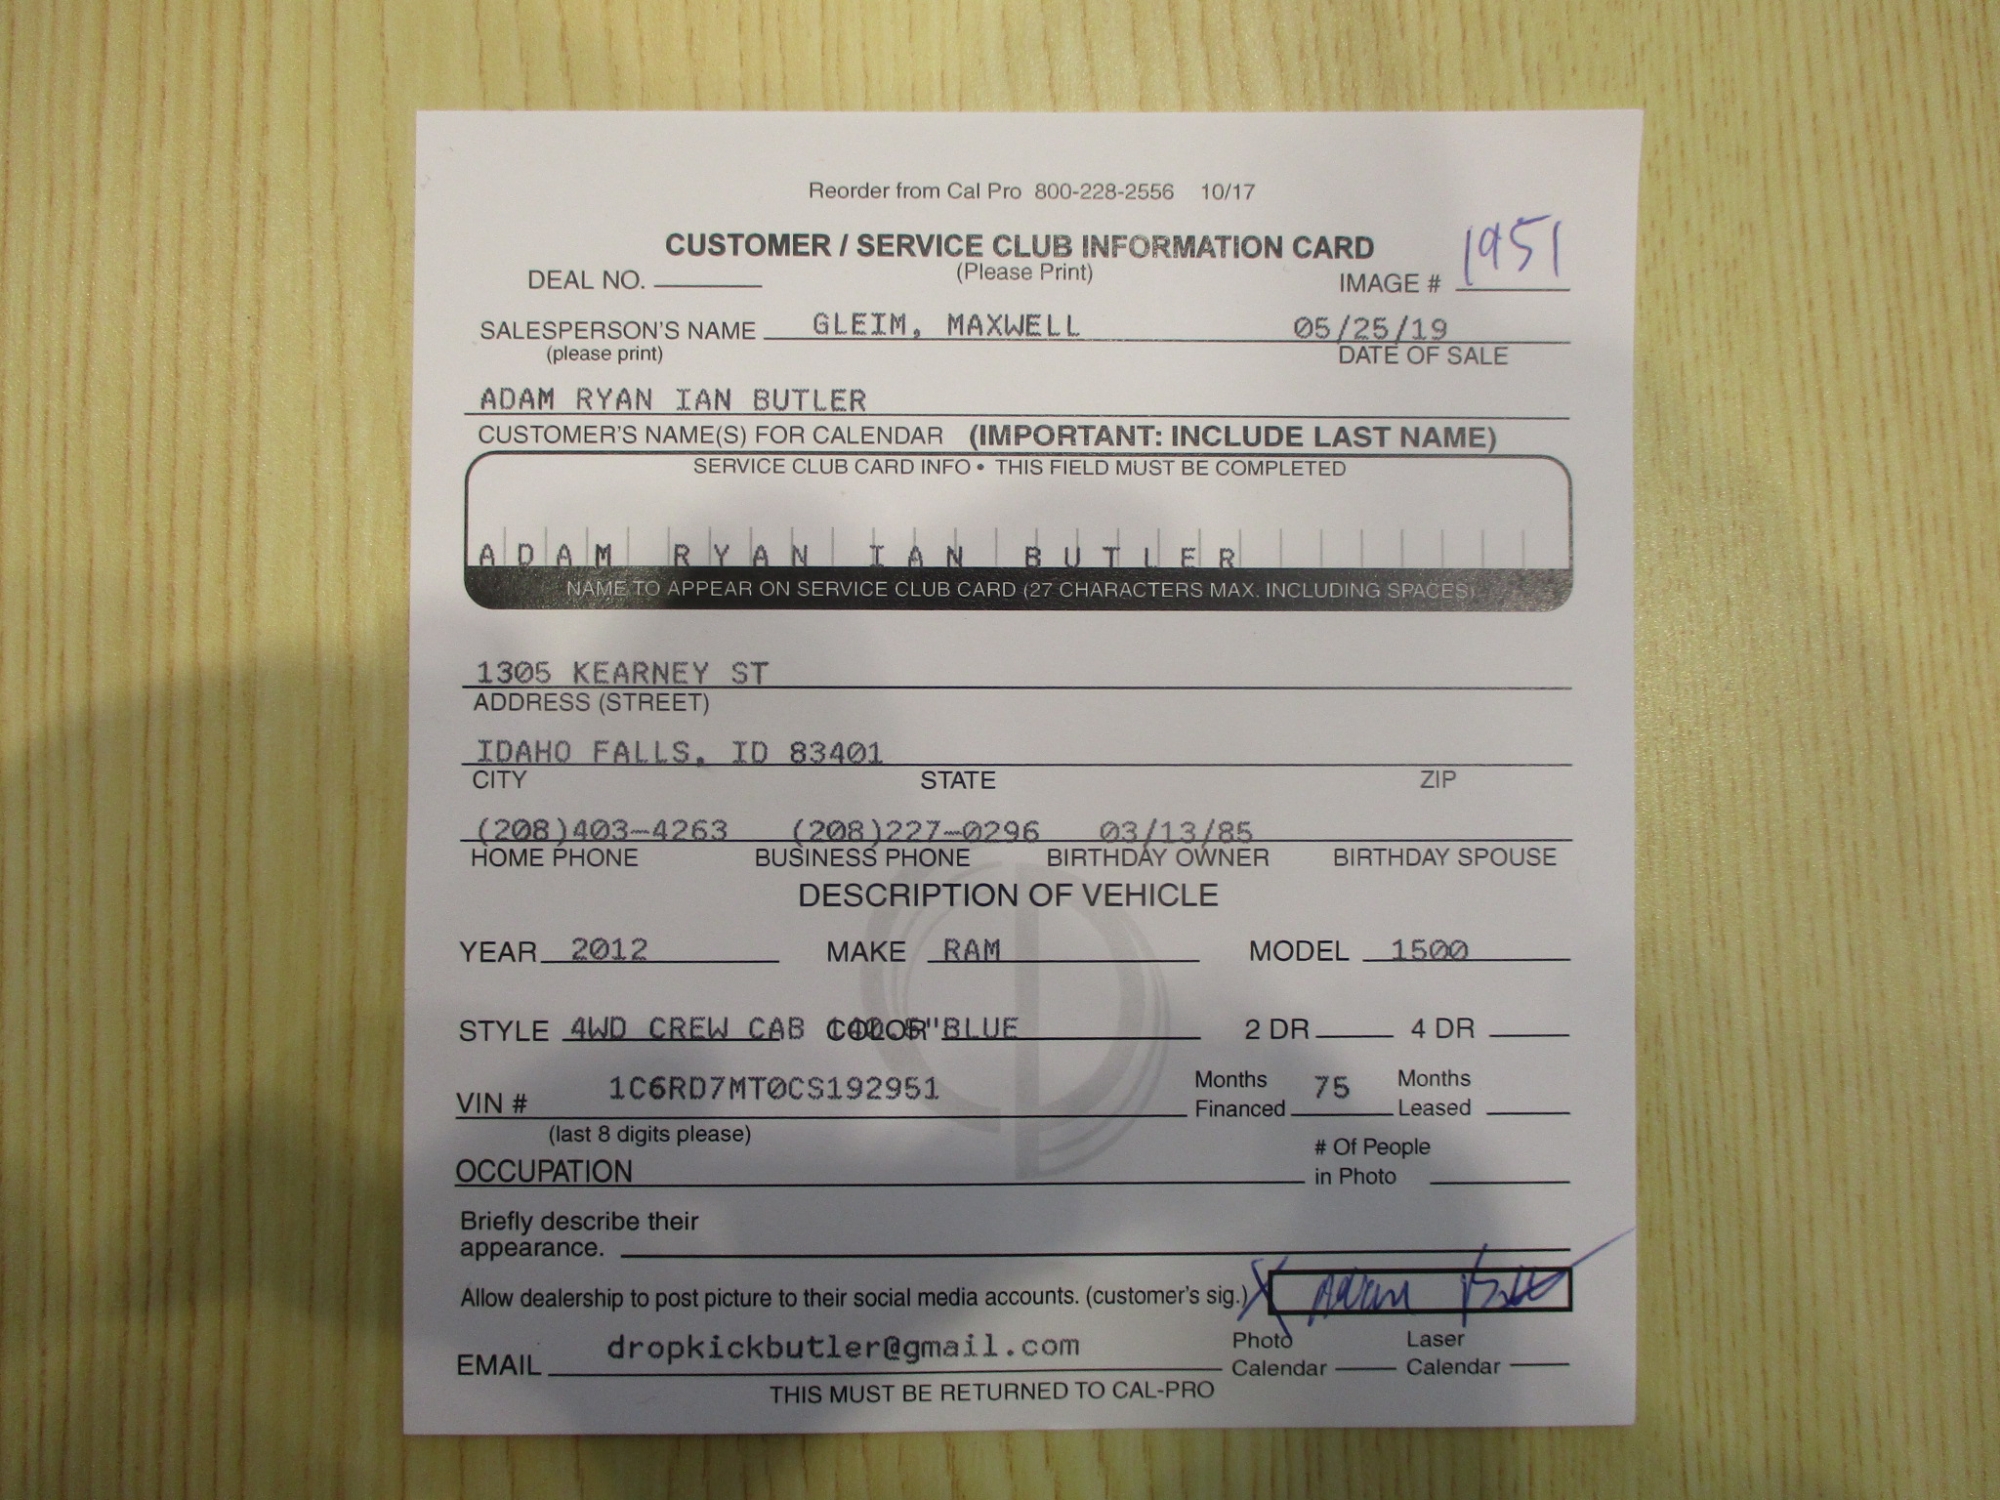 Reorder from Cal Pro 800-228-2556 10/17
CUSTOMER / SERVICE CLUB INFORMATION CARD
(Please Print)
DEAL NO. IMAGE # 1951
SALESPERSON'S NAME GLEIM, MAXWELL 05/25/19
(please print) DATE OF SALE
ADAM RYAN IAN BUTLER
CUSTOMER'S NAME(S) FOR CALENDAR (IMPORTANT: INCLUDE LAST NAME)
SERVICE CLUB CARD INFO • THIS FIELD MUST BE COMPLETED
ADAM RYAN IAN BUTLER
NAME TO APPEAR ON SERVICE CLUB CARD (27 CHARACTERS MAX. INCLUDING SPACES)
1305 KEARNEY ST
ADDRESS (STREET)
IDAHO FALLS, ID 83401
CITY STATE ZIP
(208)403-4263 (208)227-0296 03/13/85
HOME PHONE BUSINESS PHONE BIRTHDAY OWNER BIRTHDAY SPOUSE
DESCRIPTION OF VEHICLE
YEAR 2012 MAKE RAM MODEL 1500
STYLE 4WD CREW CAB COLOR BLUE 2 DR 4 DR
VIN # 1C6RD7MT0CS192951 Months Financed 75 Months Leased
(last 8 digits please)
OCCUPATION # Of People in Photo
Briefly describe their
appearance.
Allow dealership to post picture to their social media accounts. (customer's sig.) X Adam
EMAIL dropkickbutler@gmail.com Photo Calendar Laser Calendar
THIS MUST BE RETURNED TO CAL-PRO